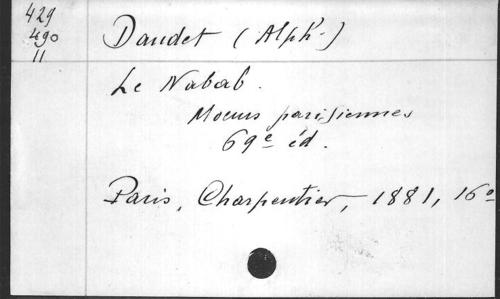 429
490
11
Daudet (Alph.)
Le Nabab.
Moeurs parisiennes
69e éd.
Paris, Charpentier, 1881, 16o